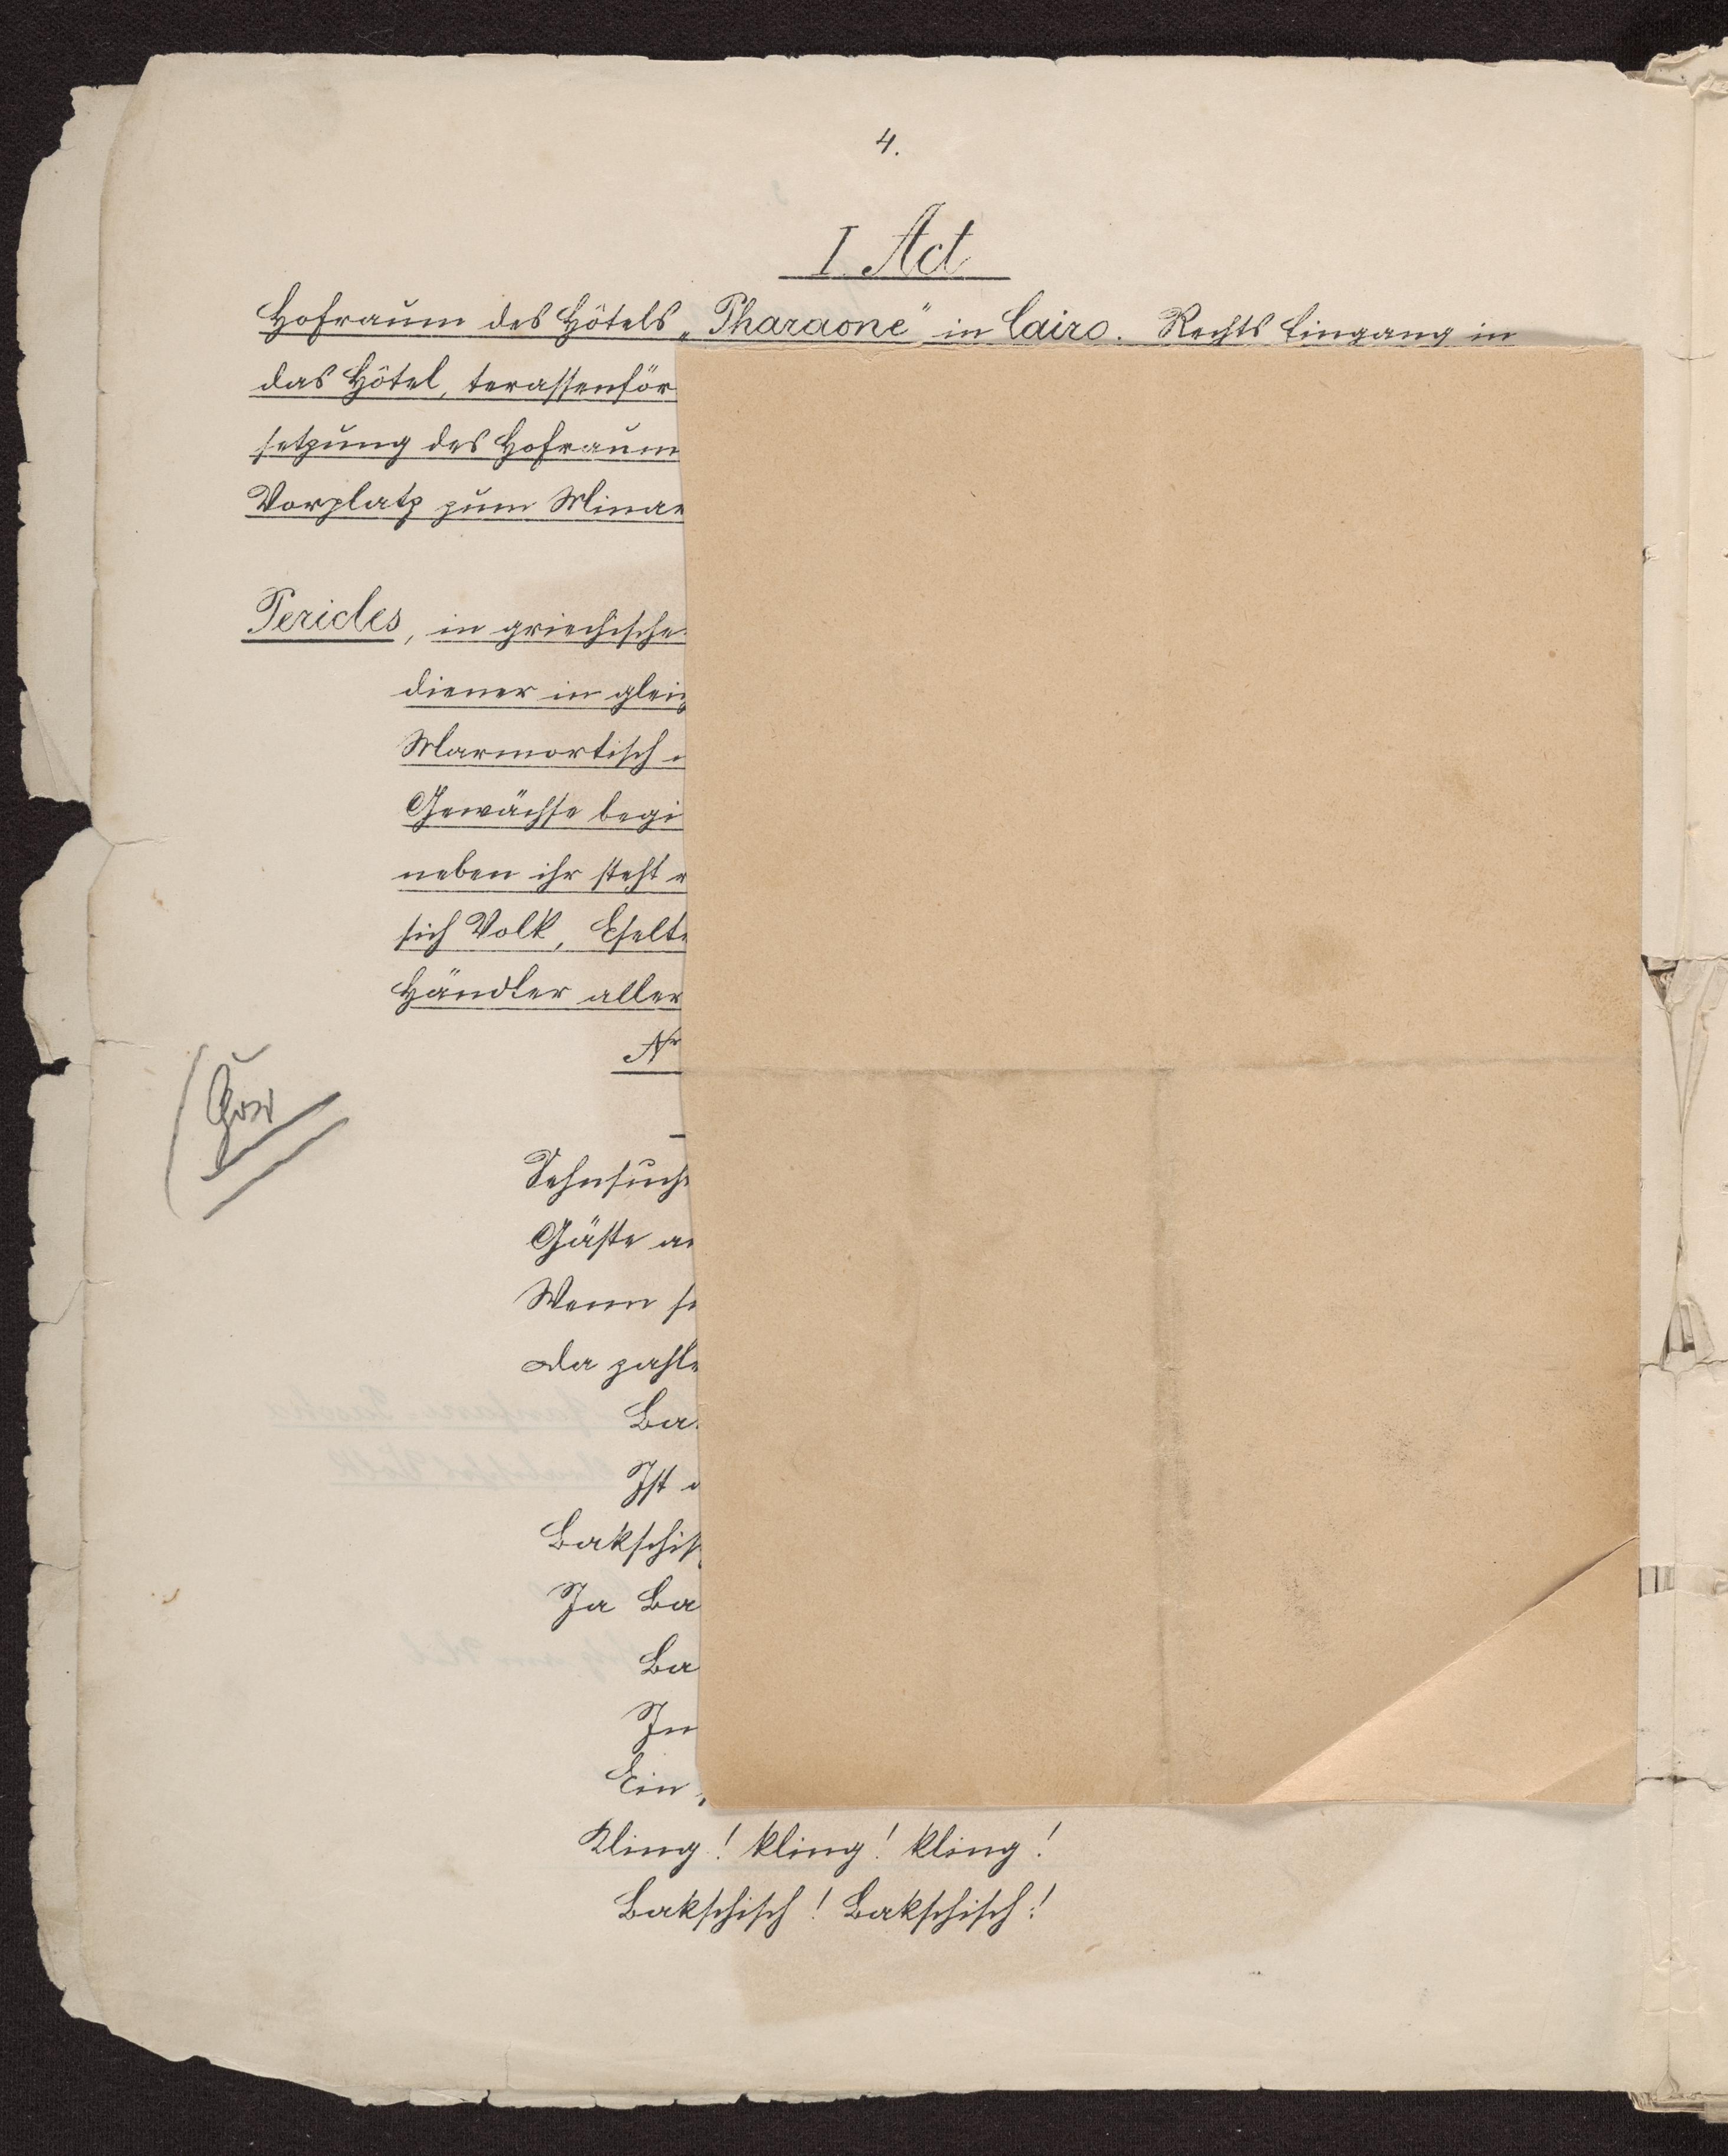 4.
I. Act
Hofraum des Hôtels „Pharaone" in Cairo. Rechts Eingang in
das Hôtel, terassenför
setzung des Hofraum
Vorplatz zum Minar
Pericles, in griechische
diener in gleich
Marmortisch
Gewächse begi
neben ihr steht
sich Volk, Eselt
Händler aller
Nr
Sehnsuch
Gäste
Wenn
Da zahle
Ba
Ist
Bakschisch
Ja Ba
Ba
In
Ein
Kling! kling! kling!
Bakschisch! Bakschisch!